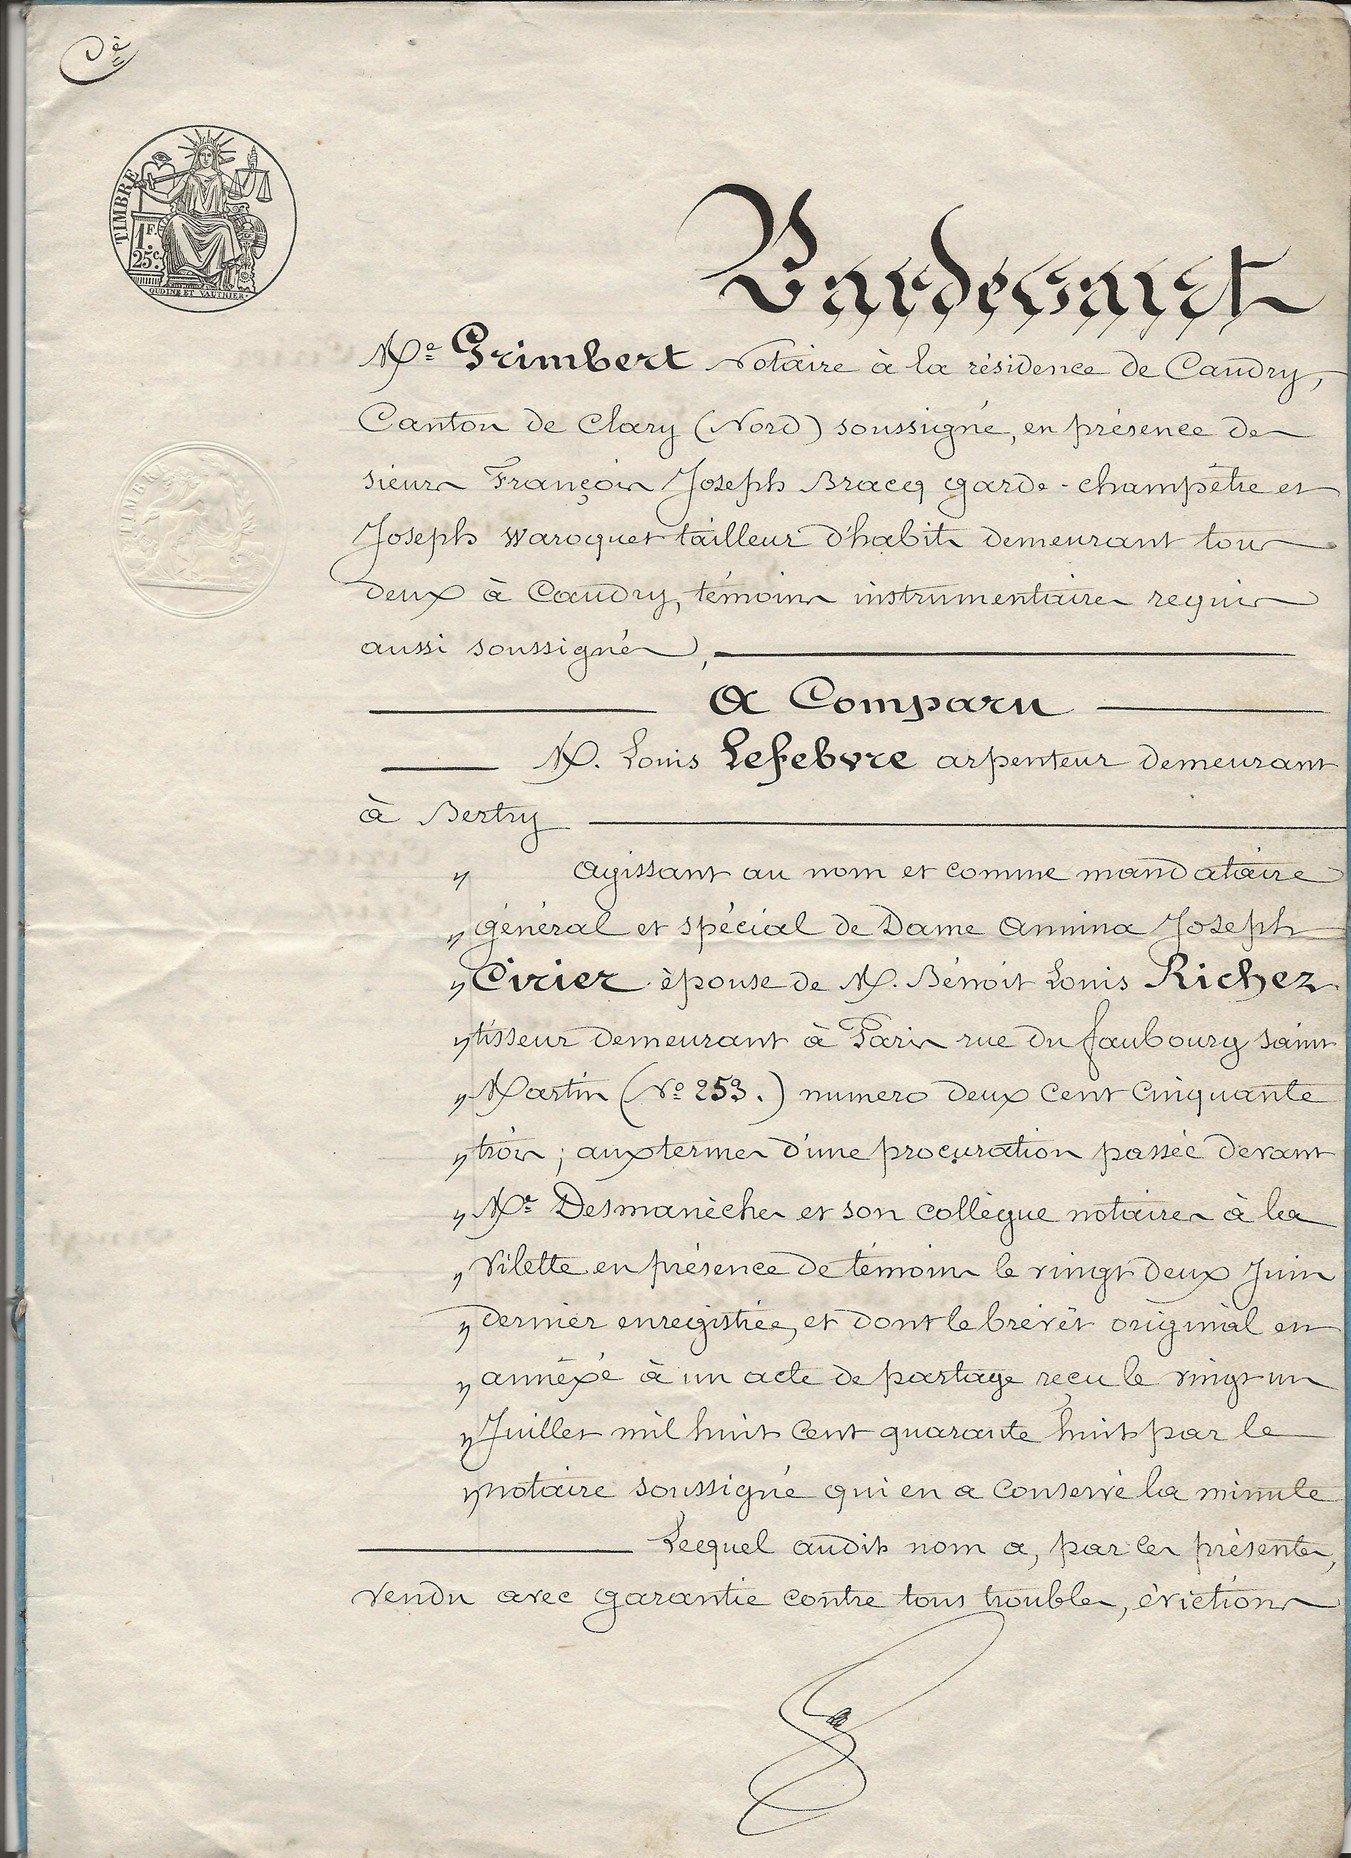 Dè
TIMBRE
1F.
25c.
OUDINE ET VAUTHIER.
TIMBRE
Pardevant
Me Grimbert Notaire à la résidence de Caudry,
Canton de Clary (Nord) soussigné, en présence de
sieurs François Joseph Bracq garde-champêtre et
Joseph Waroquet tailleur d'habits demeurant tous
deux à Caudry, témoins instrumentaires requis
aussi soussignés,
A Comparu
M. Louis Lefebvre arpenteur demeurant
à Bertry
" agissant au nom et comme mandataire
" général et spécial de Dame Annina Joseph
" Cirier épouse de M. Bénoit Louis Richez
" tisseur demeurant à Paris rue du faubourg saint
" Martin (No 253.) numero deux cent cinquante
" trois ; aux termes d'une procuration passée devant
" Me Desmanèches et son collègue notaires à la
" Vilette en présence de témoins le vingt deux Juin
" dernier enregistrée, et dont le brévêt original est
" annéxé à un acte de partage reçu le vingt un
" Juillet mil huit cent quarante huit par le
" notaire soussigné qui en a conservé la minute
Lequel audit nom a, par ces présentes,
vendu avec garantie contre tous troubles, évictions